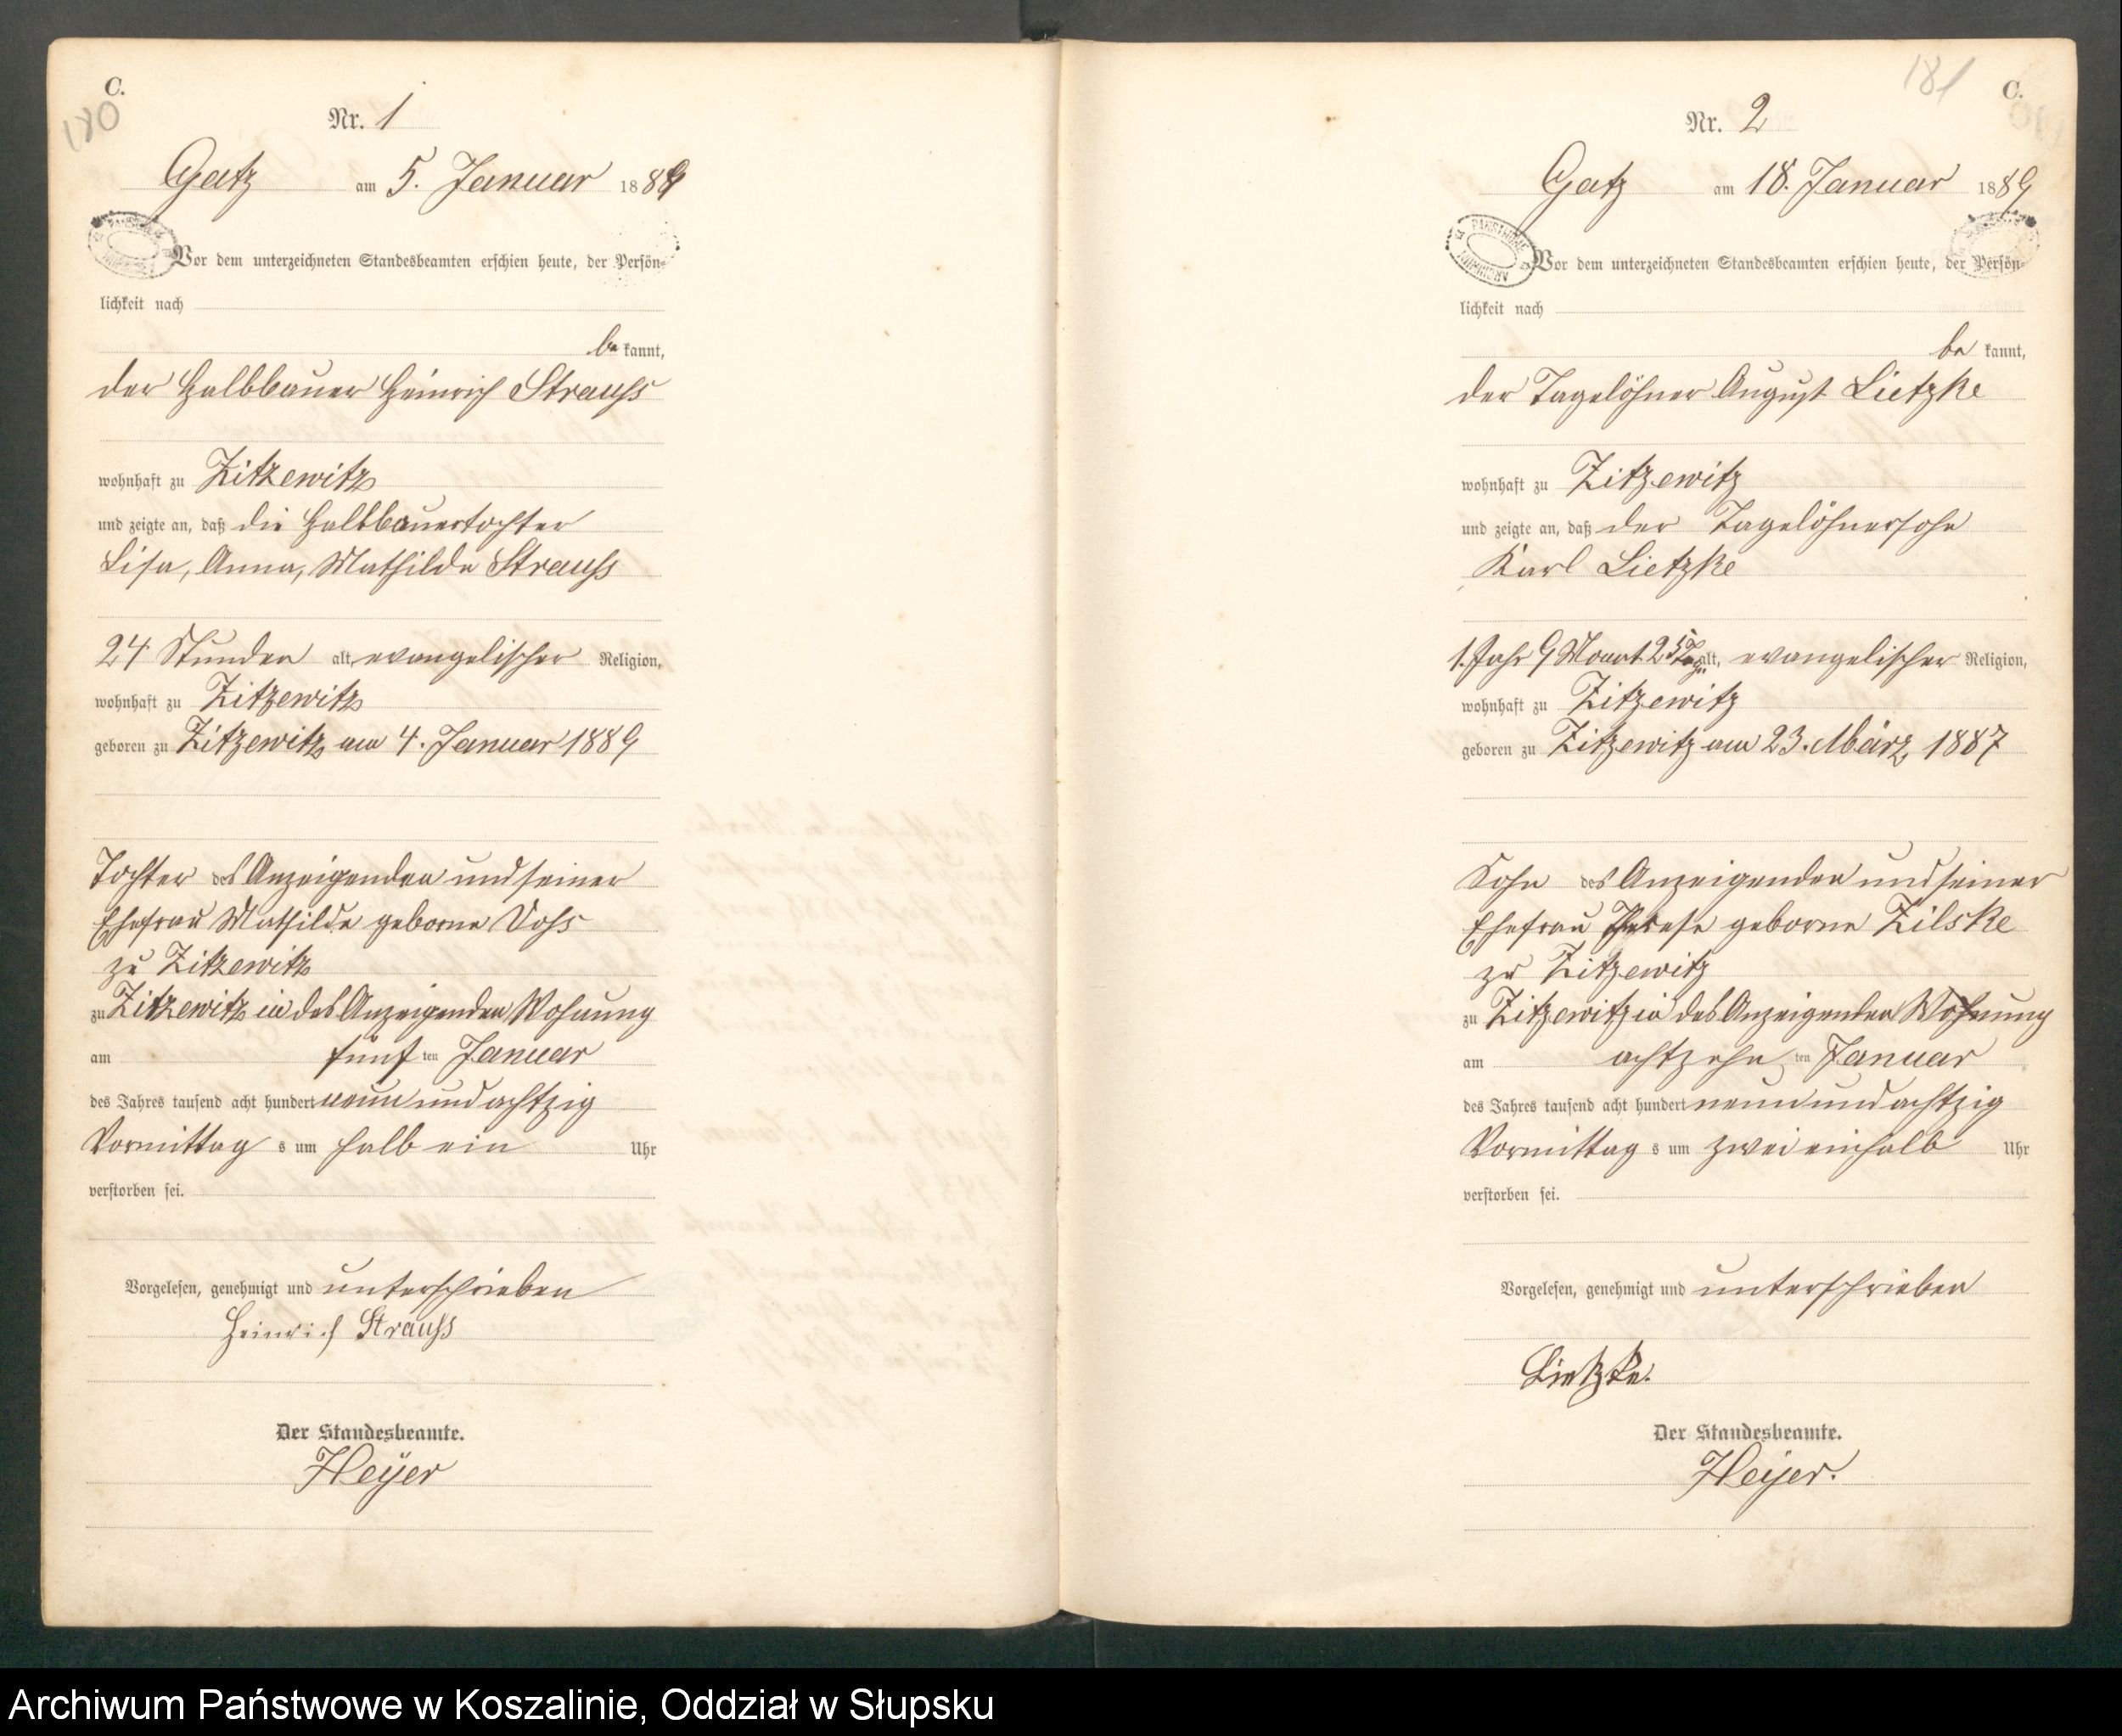 C.
180
Nr. 1
Gatz am 5. Januar 1889
Vor dem unterzeichneten Standesbeamten erschien heute, der Persön-
lichkeit nach
bekannt,
der Halbbauer Heinrich Strauss
wohnhaft zu Zitzewitz
und zeigte an, daß die Halbbauertochter
Lisa, Anna, Mathilde Strauss
24 Stunden alt, evangelischer Religion,
wohnhaft zu Zitzewitz
geboren zu Zitzewitz am 4. Januar 1889
Tochter des Anzeigenden und seiner
Ehefrau Mathilde geborne Voss
zu Zitzewitz
zu Zitzewitz in des Anzeigenden Wohnung
am fünften Januar
des Jahres tausend acht hundert neun und achtzig
Vormittags um halb ein Uhr
verstorben sei.
Vorgelesen, genehmigt und unterschrieben
Heinrich Strauss
Der Standesbeamte.
Heyer
181
C.
Nr. 2
Gatz am 18. Januar 1889
Vor dem unterzeichneten Standesbeamten erschien heute, der Persön-
lichkeit nach
bekannt,
der Tagelöhner August Lietzke
wohnhaft zu Zitzewitz
und zeigte an, daß der Tagelöhnersohn
Karl Lietzke
1. Jahr 9 Monat 25 Tage alt, evangelischer Religion,
wohnhaft zu Zitzewitz
geboren zu Zitzewitz am 23. März 1887
Sohn des Anzeigenden und seiner
Ehefrau Therese geborne Zilske
zu Zitzewitz
zu Zitzewitz in des Anzeigenden Wohnung
am achtzehnten Januar
des Jahres tausend acht hundert neun und achtzig
Vormittags um zwei einhalb Uhr
verstorben sei.
Vorgelesen, genehmigt und unterschrieben
Lietzke.
Der Standesbeamte.
Heyer.
Archiwum Państwowe w Koszalinie, Oddział w Słupsku